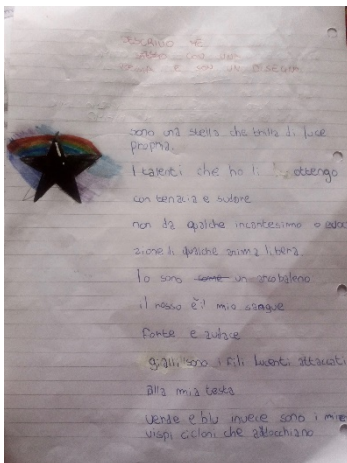 DESCRIVO ME
STESSO CON UNA
E UN DISEGNO
sono una stella che brilla di luce
propria.
I talenti che ho li ottengo
con tenacia e sudore
non da qualche incantesimo o educ
azione di qualche anima libera.
Io sono come un arcobaleno
il rosso è il mio sangue
forte e audace
gialli sono i fili lucenti attaccati
alla mia testa
verde e blu invece sono i miei
vispi cicloni che adocchiano